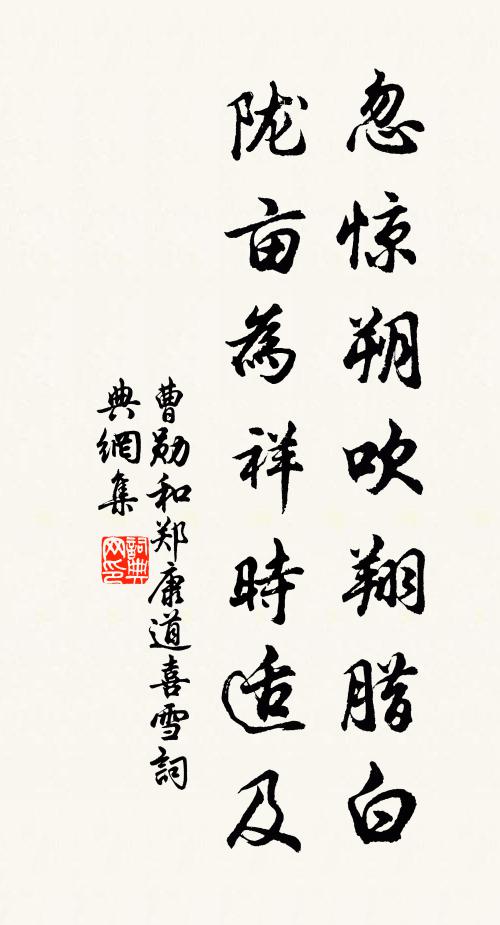 忽惊朔吹翔腊白
陇亩為祥時适及
曹勋和郑康道喜雪詞
典網集
詞典
网印